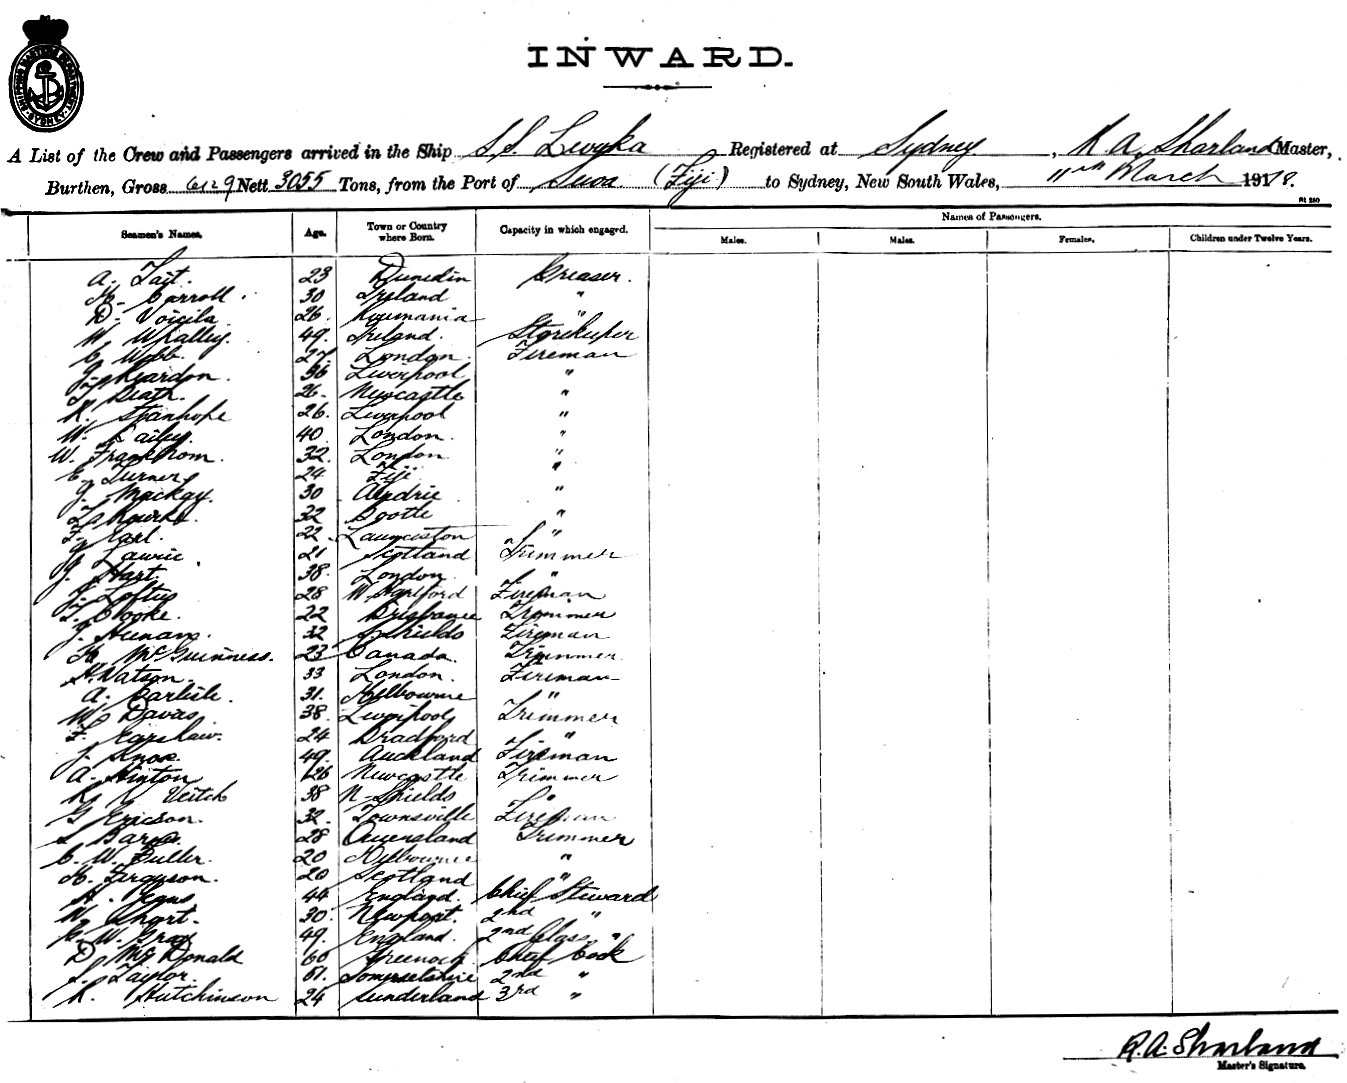 SHIPPING MASTER'S DEPARTMENT SYDNEY
INWARD.
A List of the Crew and Passengers arrived in the Ship S.S. Levuka Registered at Sydney, R A Sharland Master,
Burthen, Gross 6129 Nett 3055 Tons, from the Port of Suva (Fiji) to Sydney, New South Wales, 11th March 1918.
Seamen's Names. Age. Town or Country where Born. Capacity in which engaged. Names of Passengers.
Males. Males. Females. Children under Twelve Years.
A. Tait. 23 Dunedin Greaser.
H. Carroll. 30 Ireland "
D. Voicila 26. Roumania "
W. Whalley. 49. Ireland. Storekeeper
C. Webb. 27. London Fireman
J. Reardon. 36 Liverpool "
J. Death. 26. Newcastle "
R. Stanhope 26. Liverpool "
W. Bailey. 40. London. "
W. Frankhom. 32. London "
E. Turner 24 Fiji "
J. Mackay. 30 Airdrie "
Rourke. 32 Bootle "
F. Earl. 22. Launceston "
J. Lawrie. 21 Scotland Trimmer
J. Hart. 38. London "
J. Loftus 28 W Hartford Fireman
T. Cooke. 22 Brisbane Trimmer
J. Heenan. 32 S Shields Fireman
H. McGuinness. 23 Canada. Trimmer
H. Watson. 33 London. Fireman
A. Carlisle. 31. Melbourne "
W. Davas 38. Liverpool Trimmer
F. Earshaw. 24 Bradford "
J. Knox 49. Auckland Fireman
A. Hinton 26 Newcastle Trimmer
R. Veitch 38 N-Shields "
G Ericson. 32. Townsville Fireman
S. 28 Queensland Trimmer
C. W. Fuller. 20 Melbourne "
H. Ferguson. 20 Scotland "
H. 44 England. Chief Steward
W. Short. 30. Newport. 2nd "
G. W. Gray 49. England. 2nd Class "
D. McDonald 60 Greenock Chief Cook
S. Taylor. 51. Somersetshire 2nd "
R. Hutchinson 24 Sunderland 3rd "
R.A. Sharland
Master's Signature.